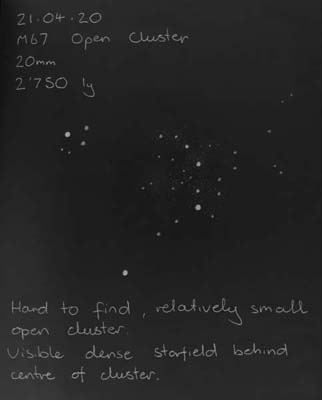 21.04.20
M67 Open Cluster
20mm
2'750 ly
Hard to find, relatively small
open cluster.
Visible dense starfield behind
centre of cluster.